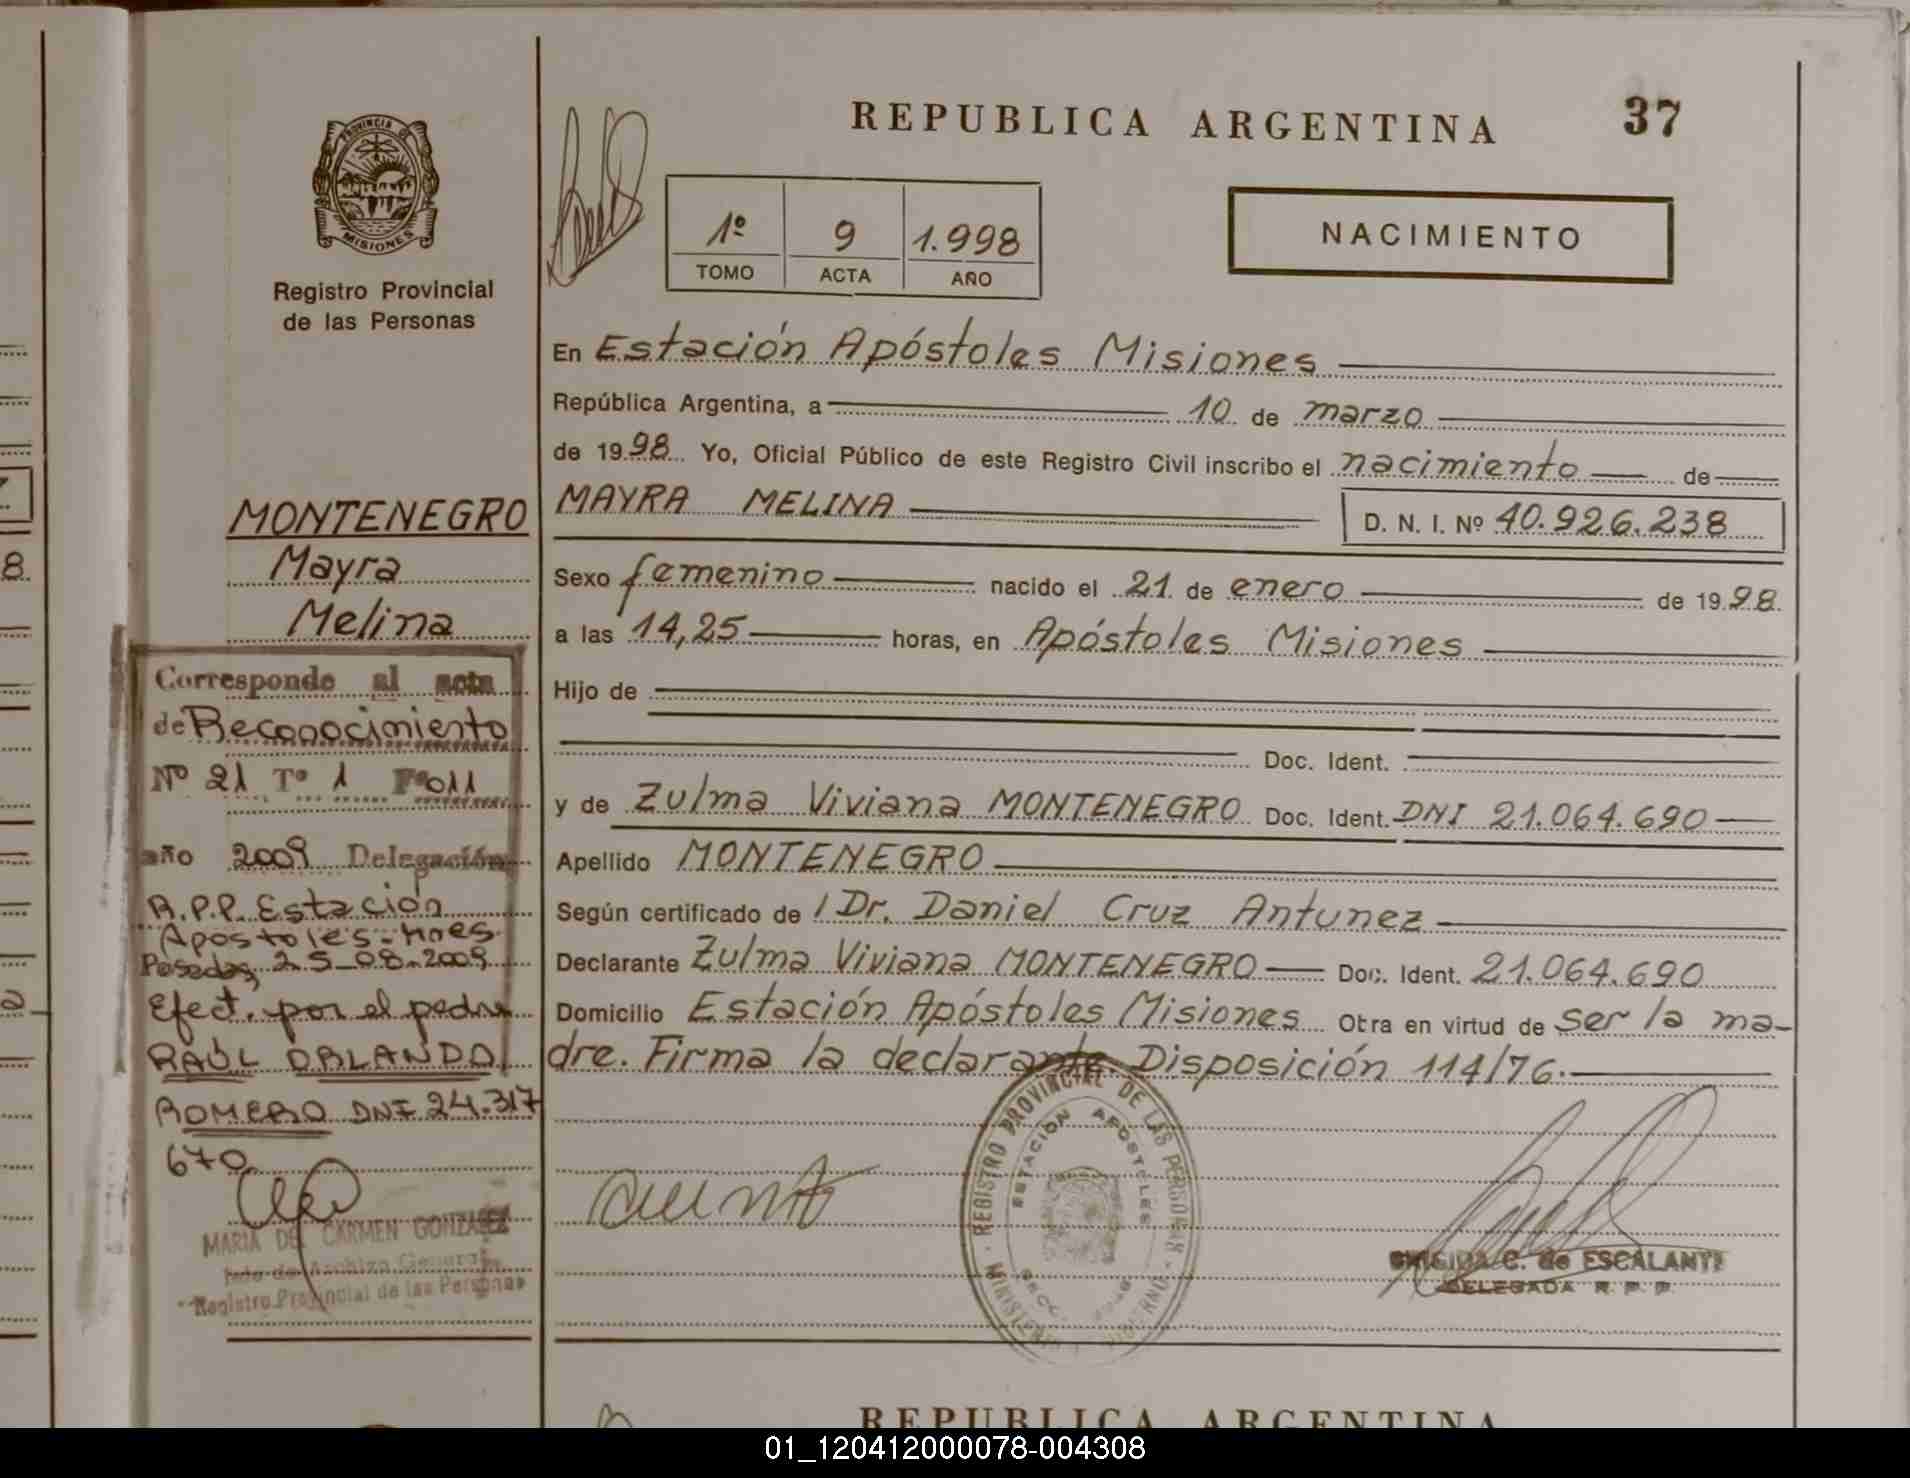 REPUBLICA ARGENTINA
37
PROVINCIA DE
MISIONES
Registro Provincial
de las Personas
1º 9 1.998
TOMO ACTA AÑO
NACIMIENTO
En Estación Apóstoles Misiones
República Argentina, a 10 de marzo
de 1998 Yo, Oficial Público de este Registro Civil inscribo el nacimiento de
MAYRA MELINA D. N. I. Nº 40.926.238
Sexo femenino nacido el 21 de enero de 1998
a las 14,25 horas, en Apóstoles Misiones
Hijo de
Doc. Ident.
y de Zulma Viviana MONTENEGRO Doc. Ident. DNI 21.064.690
Apellido MONTENEGRO
Según certificado de / Dr. Daniel Cruz Antunez
Declarante Zulma Viviana MONTENEGRO Doc. Ident. 21.064.690
Domicilio Estación Apóstoles Misiones Otra en virtud de ser la ma-
dre. Firma la declarante. Disposición 114/76.
MONTENEGRO
Mayra
Melina
Corresponde al acta
de Reconocimiento
Nº 21 Tº 1 Fº 011
año 2009 Delegación
R.P.P. Estación
Apostoles - Mnes
Posadas, 25-08-2009
Efect. por el padre
RAÚL ORLANDO
ROMERO DNI 24.317
670
MARIA DEL CARMEN GONZALEZ
Jefe de Archivo General
Registro Provincial de las Personas
REGISTRO PROVINCIAL DE LAS PERSONAS
ESTACION APOSTOLES
MINISTERIO GOBIERNO
C. de ESCALANTE
DELEGADA R. P. P.
REPUBLICA ARGENTINA
01_120412000078-004308